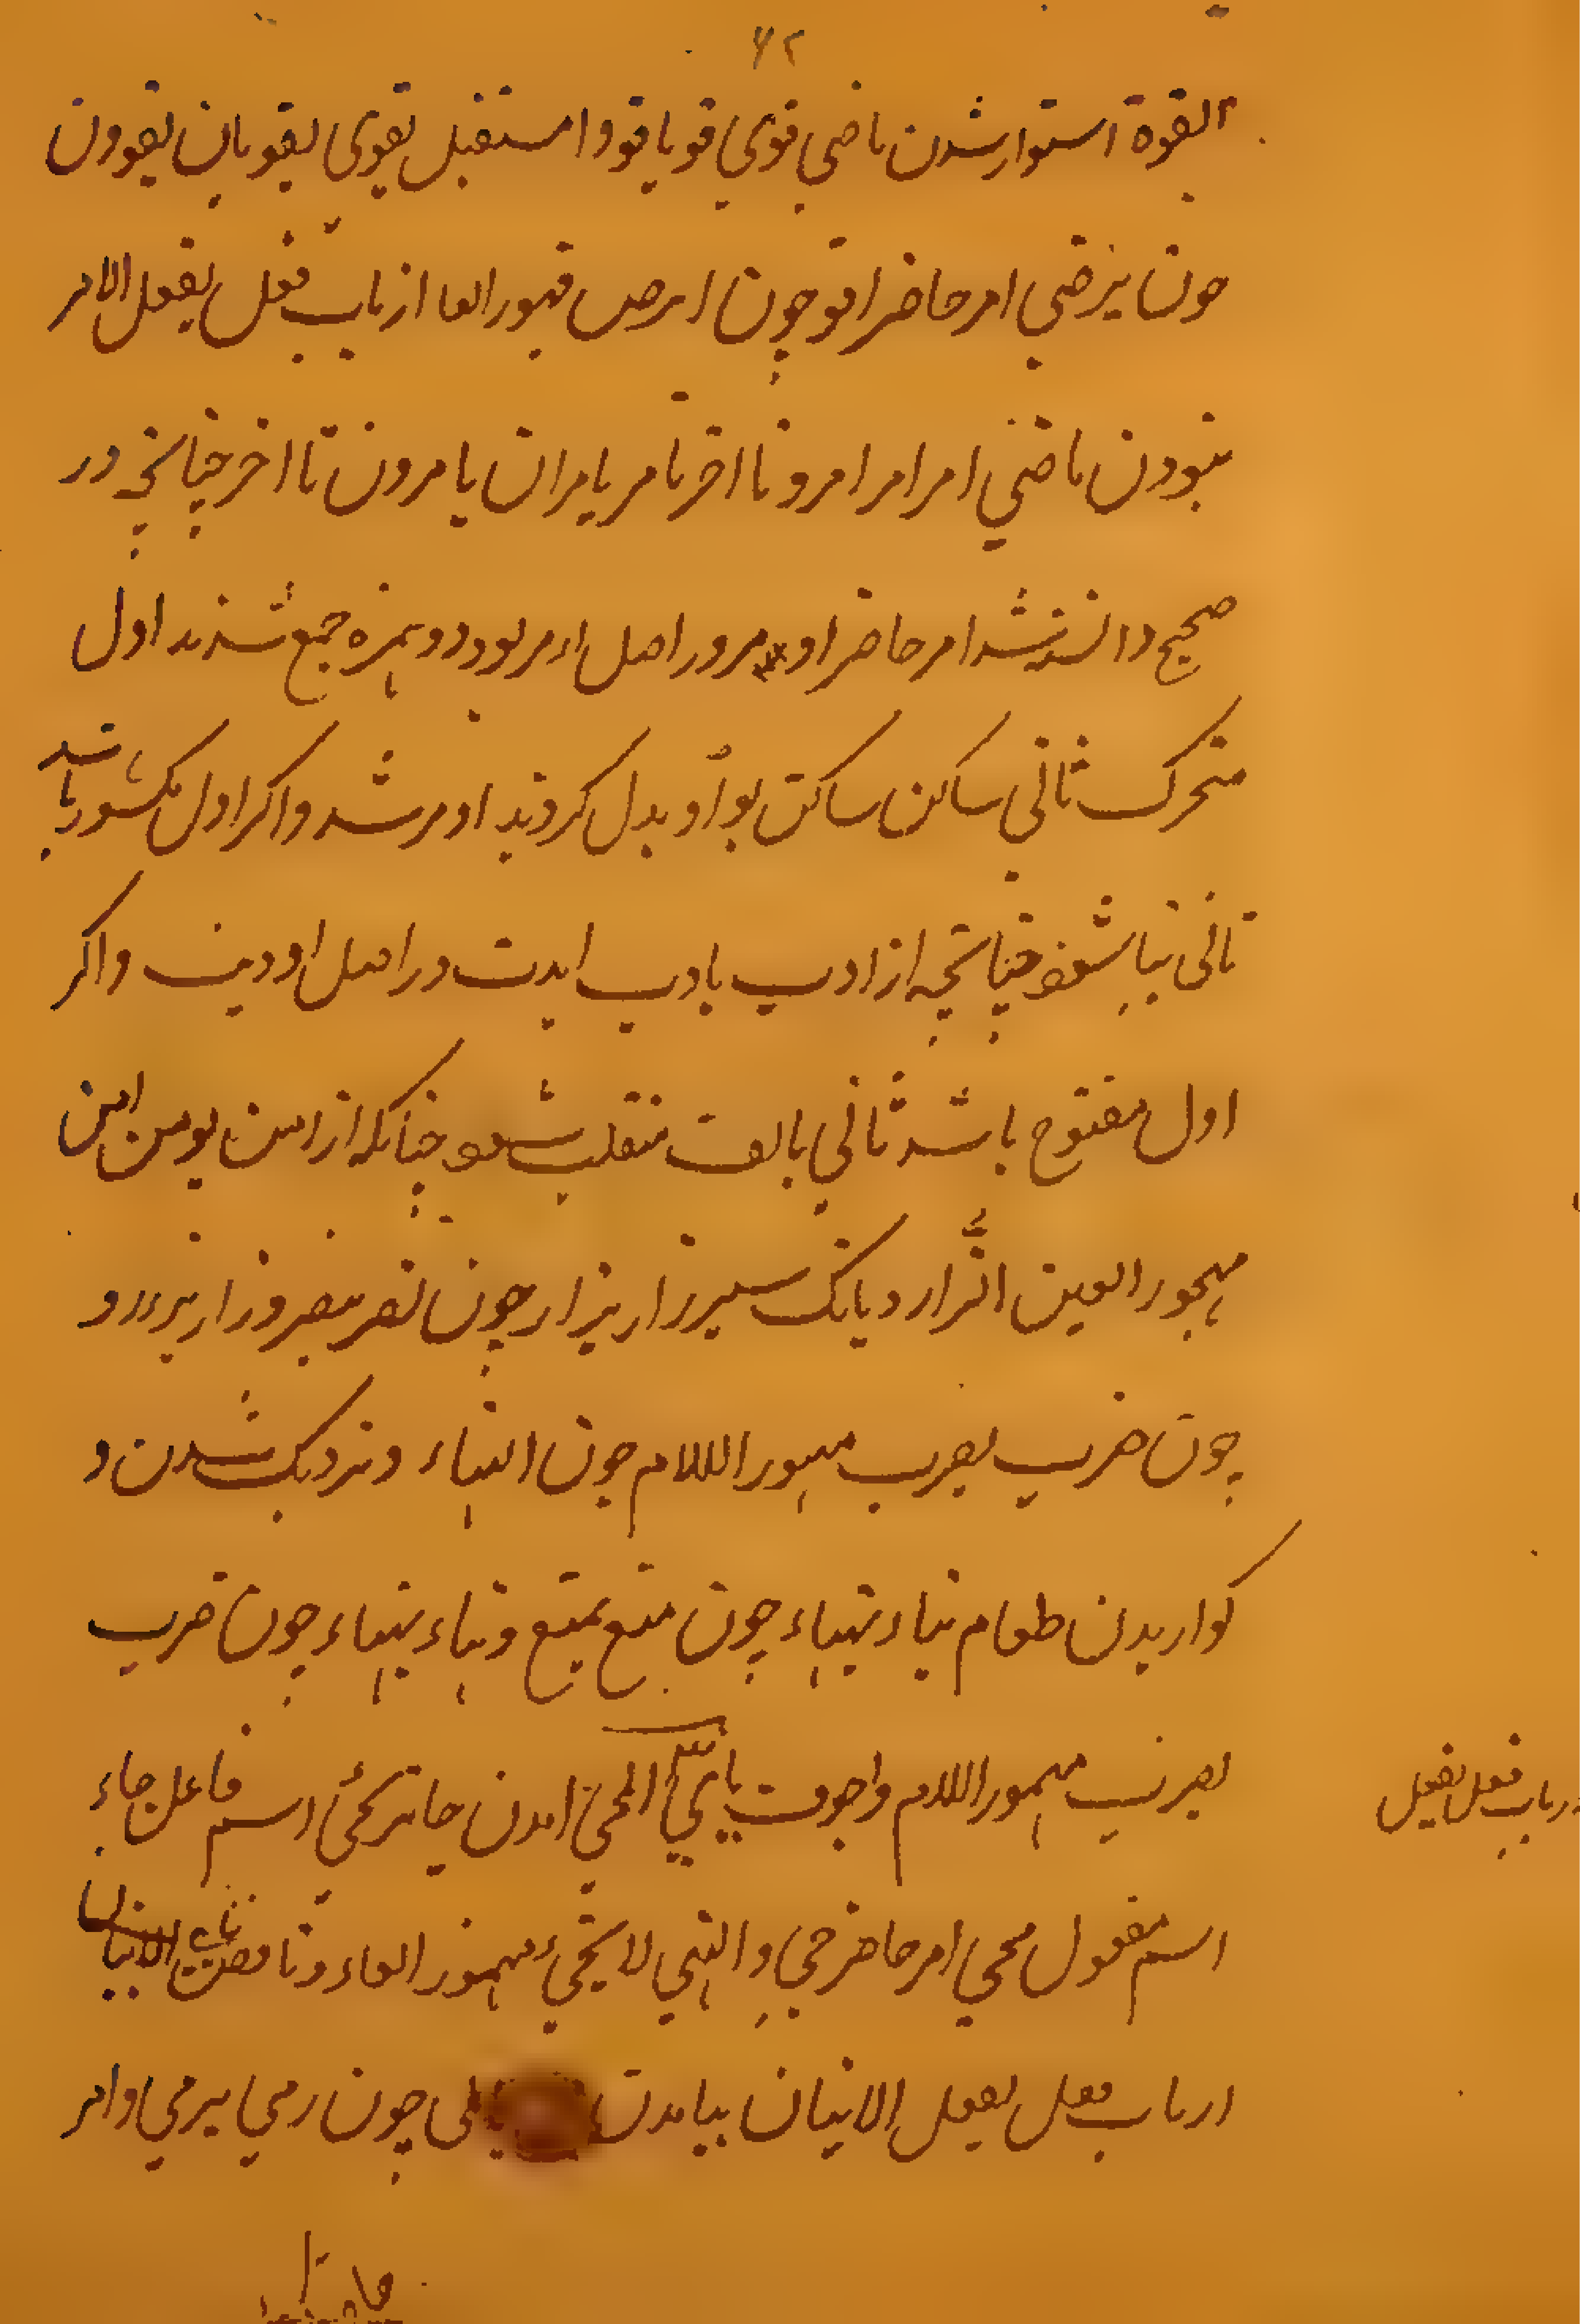 ۶۲
القوة استوار شدن ماضی قوی قویا قووا مستقبل یقوی یقویان یقوون
چون یرضی امر حاضر اقو چون ارض مهموز الفا از باب فعل یفعل الامر
نبودن ماضی امر امرا امروا تا اخر یامر یامران یامرون تا اخر چنانچه در
صحیح دانسته شد امر حاضر اومر در اصل اءمر بود دو همزه جمع شدند اول
متحرک ثانی ساکن ساکن بواو بدل کردند اومر شد و اکر اول مکسور باشد
ثانی بیا شود چنانچه از ادب یادب ایدب در اصل اودب و اکر
اول مفتوح باشد ثانی بالف منقلب شود چنانکه از امن یومن امن
مهموز العین الزار و بانک شیر زار یزار چون نصر ینصر و زار یزءر
چون ضرب یضرب مهموز اللام چون الهناء و نزدیک شدن و
کواریدن طعام هناء یهناء چون منع یمنع و هناء یهناء چون ضرب
یضرب مهموز اللام و اجوف یایی المجی امدن جاء یجی اسم فاعل جاء
در باب فعل یفعل
اسم مفعول مجی امر حاضر جی و النهی لا یجی مهموز الفاء و ناقص یایی
از باب فعل یفعل الاتیان بیامدن یاتی چون رمی یرمی و امر